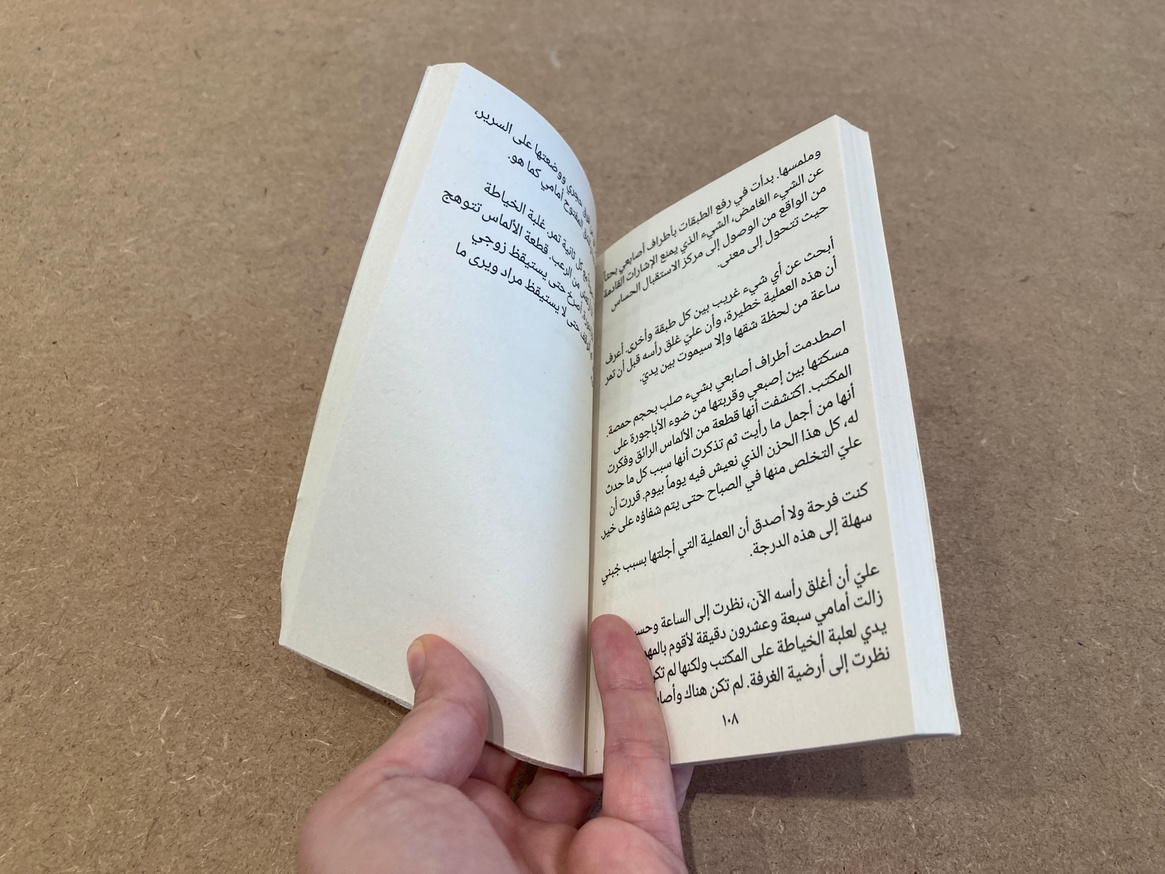 وملمسها. بدأت في رفع الطبقات بأطراف أصابعي بحثاً
عن الشيء الغامض، الشيء الذي يمنع الإشارات القادمة
من الواقع من الوصول إلى مركز الاستقبال الحساس
حيث تتحول إلى معنى.
أبحث عن أي شيء غريب بين كل طبقة وأخرى. أعرف
أن هذه العملية خطيرة، وأن عليّ غلق رأسه قبل أن تمر
ساعة من لحظة شقها وإلا سيموت بين يديّ.
اصطدمت أطراف أصابعي بشيء صلب بحجم حمصة.
مسكتها بين إصبعي وقربتها من ضوء الأباجورة على
المكتب. اكتشفت أنها قطعة من الألماس الرائق وفكرت
أنها من أجمل ما رأيت ثم تذكرت أنها سبب كل ما حدث
له، كل هذا الحزن الذي نعيش فيه يوماً بيوم. قررت أن
عليّ التخلص منها في الصباح حتى يتم شفاؤه على خير.
كنت فرحة ولا أصدق أن العملية التي أجلتها بسبب جُبني
سهلة إلى هذه الدرجة.
عليّ أن أغلق رأسه الآن، نظرت إلى الساعة
زالت أمامي سبعة وعشرون دقيقة لأقوم
يدي لعلبة الخياطة على المكتب ولكنها لم
نظرت إلى أرضية الغرفة. لم تكن هناك
١٠٨
ووضعتها على السرير،
المفتوح أمامي كما هو.
كل ثانية تمر. علبة الخياطة
من الرعب. قطعة الألماس تتوهج
أصرخ حتى يستيقظ زوجي
حتى لا يستيقظ مراد ويرى ما